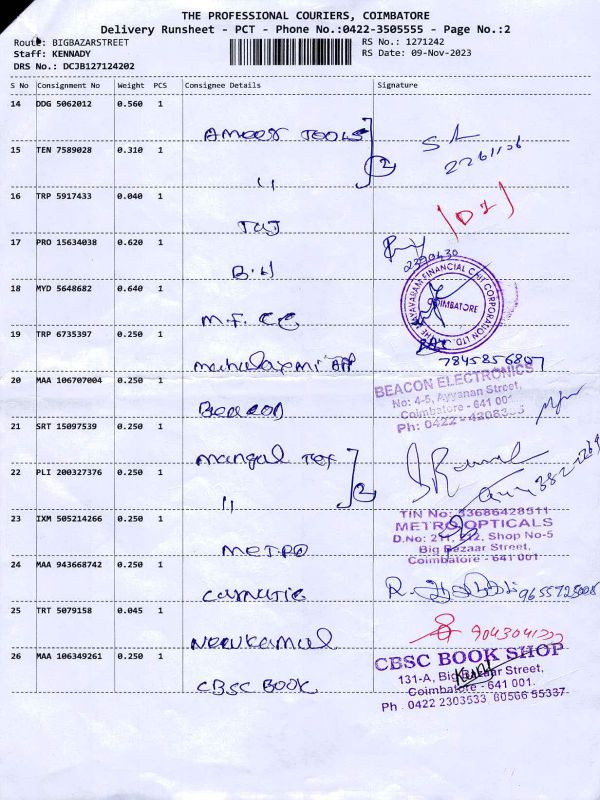 THE PROFESSIONAL COURIERS, COIMBATORE
Delivery Runsheet - PCT - Phone No.:0422-3505555 - Page No.:2
Route: BIGBAZARSTREET
RS No.: 1271242
Staff: KENNADY
RS Date: 09-Nov-2023
DRS No.: DCJB127124202
S No Consignment No Weight PCS Consignee Details Signature
14 DDG 5062012 0.560 1
AMEER TOOLS
15 TEN 7589028 0.310 1
2
"
16 TRP 5917433 0.040 1
TAJ
17 PRO 15634038 0.620 1
B.H
18 MYD 5648682 0.640 1
THE MAYAVARAM FINANCIAL CHIT CORPORATION LTD
COIMBATORE
M.F. CC
19 TRP 6735397 0.250 1
Mahalaxmi APP
7845856807
20 MAA 106707004 0.250 1
BEACON ELECTRONICS
No: 4-5, Ayyanan Street,
Coimbatore - 641 001
Ph: 0422 -
Beacon
21 SRT 15097539 0.250 1
Mangal Tex
22 PLI 200327376 0.250 1
2
"
23 IXM 505214266 0.250 1
TIN No: 33686428511
METRO OPTICALS
D.No: Shop No-5
Big Bazaar Street,
Coimbatore - 641 001
METRO
24 MAA 943668742 0.250 1
Carnatic
R.
9655725008
25 TRT 5079158 0.045 1
Neerukamal
26 MAA 106349261 0.250 1
CBSC BOOK SHOP
131-A, Big Bazaar Street,
Coimbatore - 641 001.
Ph : 0422 2303533, 80566 55337
CBSC BOOK